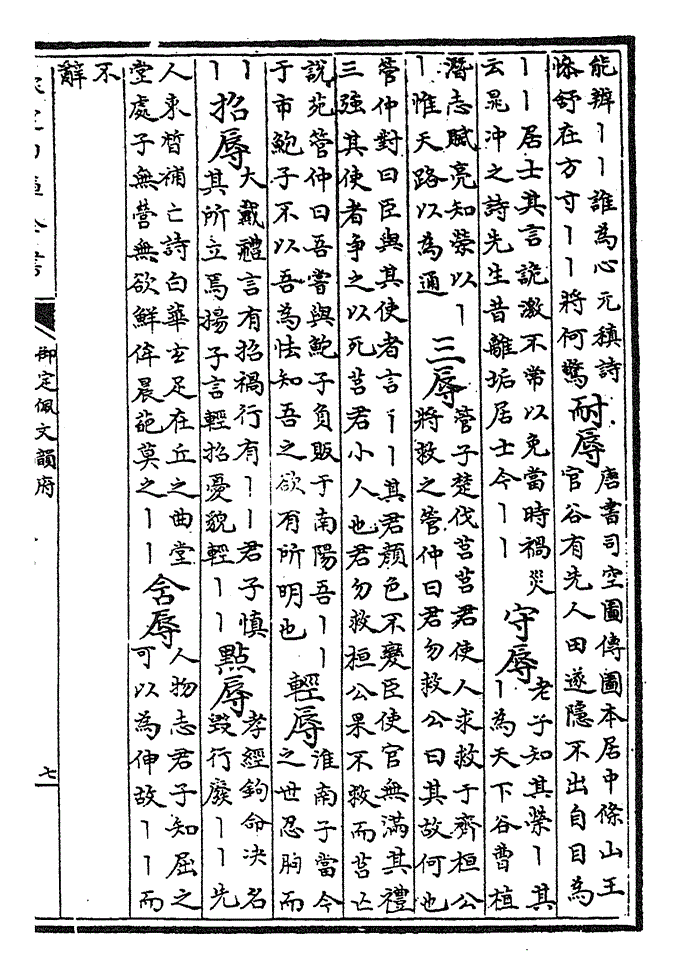 能辨丨丨誰為心元稹詩
慘舒在方寸丨丨將何驚
耐辱
唐書司空圖傳圖本居中條山王
官谷有先人田遂隱不出自目為
丨丨居士其言詭激不常以免當時禍災
云晁冲之詩先生昔離垢居士今丨丨
守辱
老子知其榮丨其
丨為天下谷曹植
潛志賦亮知榮以丨
丨惟天路以為通
三辱
管子楚伐莒莒君使人求救于齊桓公
將救之管仲曰君勿救公曰其故何也
管仲對曰臣與其使者言丨丨其君顏色不變臣使官無滿其禮
三強其使者爭之以死莒君小人也君勿救桓公果不救而莒亡
說苑管仲曰吾嘗與鮑子負販于南陽吾丨丨
于市鮑子不以吾為怯知吾之欲有所明也
輕辱
淮南子當今
之世忍訽而
丨
丨
招辱
大戴禮言有招禍行有丨丨君子慎
其所立焉揚子言輕招憂貌輕丨丨
點辱
孝經鉤命决名
毀行廢丨丨先
人束皙補亡詩白華玄足在丘之曲堂
堂處子無營無欲鮮侔晨葩莫之丨丨
含辱
人物志君子知屈之
可以為伸故丨丨而
不
辭
御定佩文韻府
七